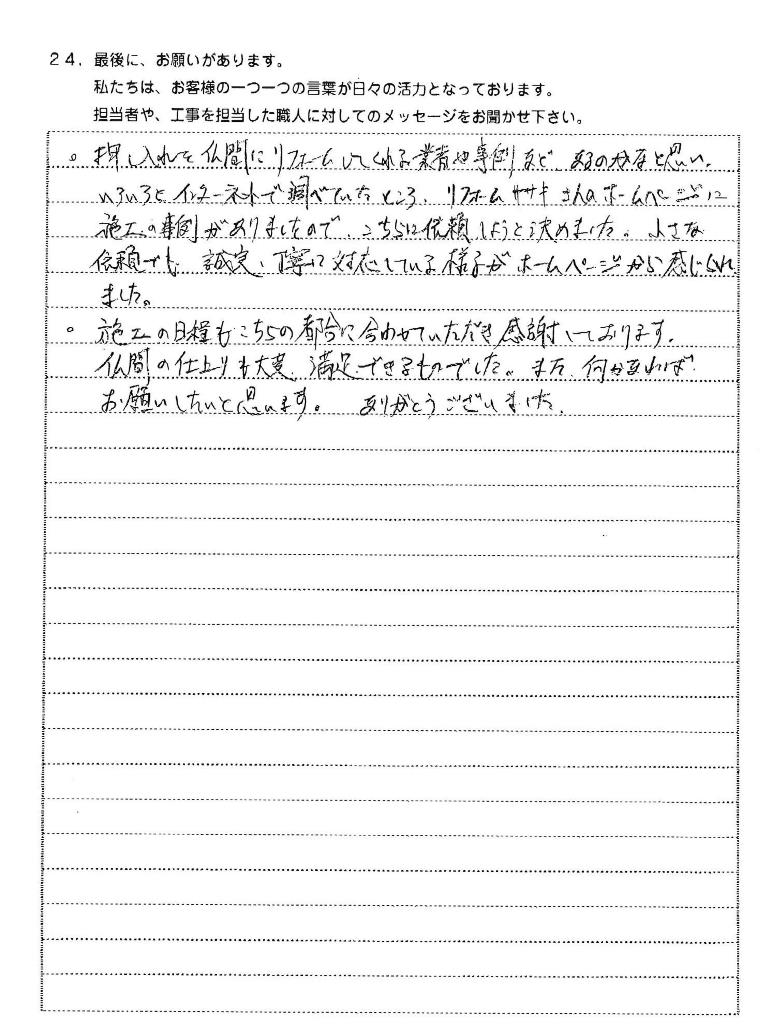 24．最後に、お願いがあります。
私たちは、お客様の一つ一つの言葉が日々の活力となっております。
担当者や、工事を担当した職人に対してのメッセージをお聞かせ下さい。
。押し入れを仏間にリフォームしてくれる業者や事例など、あるのかなと思い、
いろいろとインターネットで調べていたところ、リフォームササキさんのホームページに
施工の事例がありましたので、こちらに依頼しようと決めました。小さな
依頼でも、誠実、丁寧に対応している様子がホームページから感じられ
ました。
。施工の日程もこちらの都合に合わせていただき感謝しております。
仏間の仕上りも大変、満足できるものでした。また、何かあれば
お願いしたいと思います。 ありがとうございました。